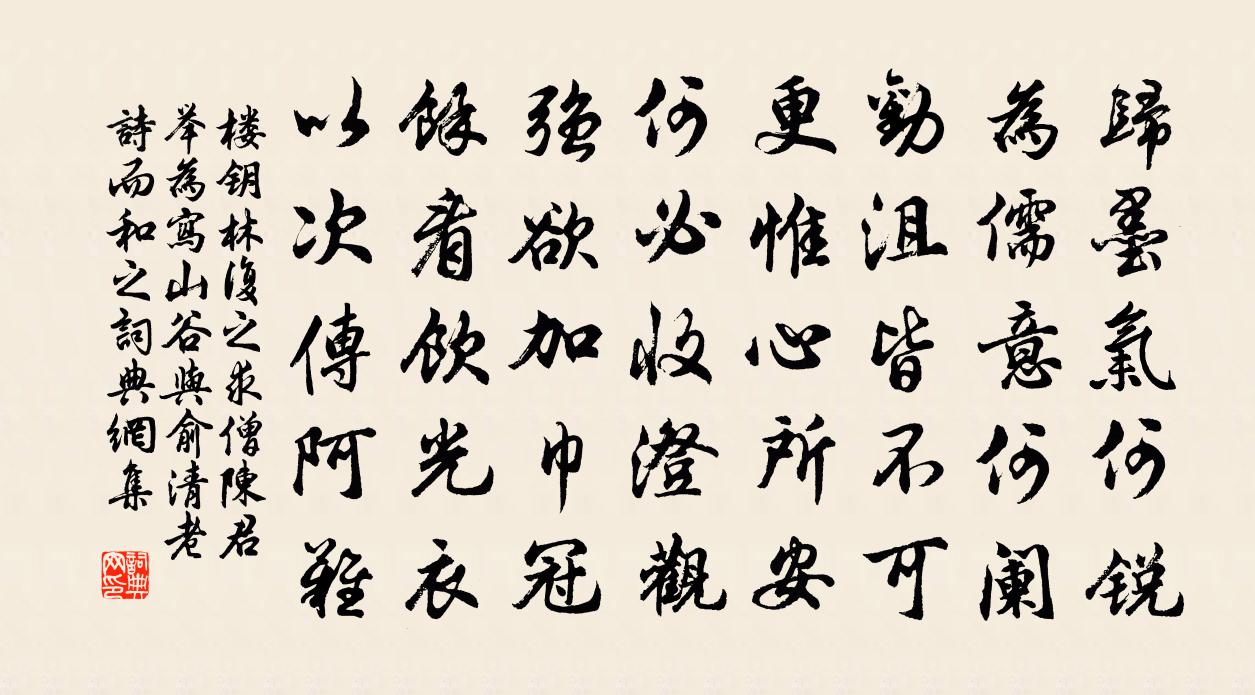 歸墨氣何锐
為儒意何阑
勸沮皆不可
更惟心所安
何必收澄觀
強欲加巾冠
餘者飲光衣
以次傳阿難
楼钥林復之求僧陳君
举為寫山谷與俞清老
詩而和之詞典網集
詞典网印